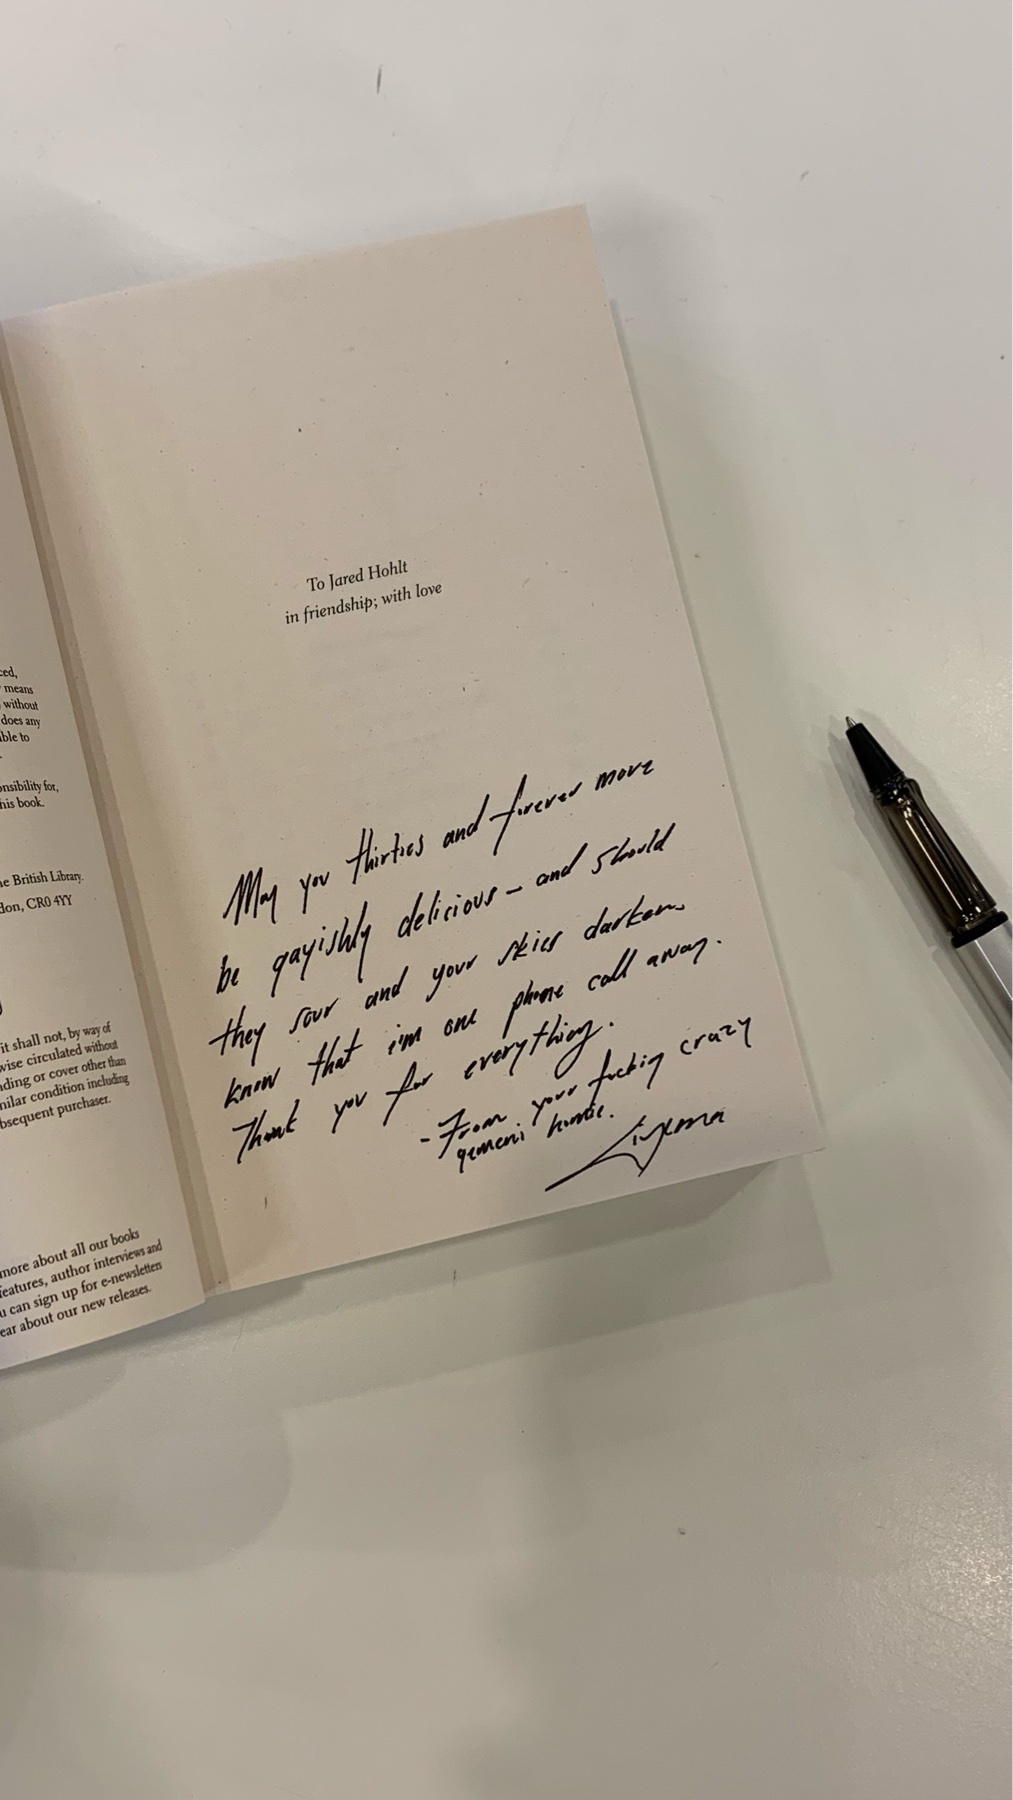 ced,
means
without
does any
ble to
onsibility for,
his book.
e British Library.
don, CR0 4YY
it shall not, by way of
wise circulated without
nding or cover other than
milar condition including
bsequent purchaser.
more about all our books
features, author interviews and
u can sign up for e-newsletters
ear about our new releases.
To Jared Hohlt
in friendship; with love
May you thirties and forever more
be gayishly delicious – and should
they sour and your skies darken.
know that i'm one phone call away.
Thank you for everything.
- From your fucking crazy
gemeni homie.